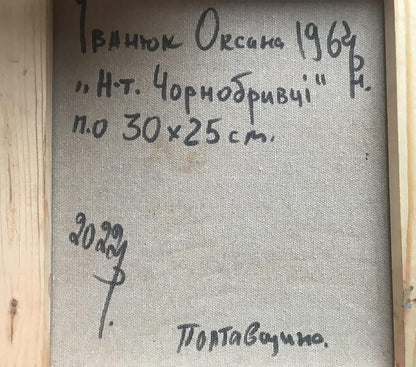 Іванюк Оксана 196 р.н.
„Н-т. Чорнобривці"
п.о 30х25см.
2022р.
Полтавщина.